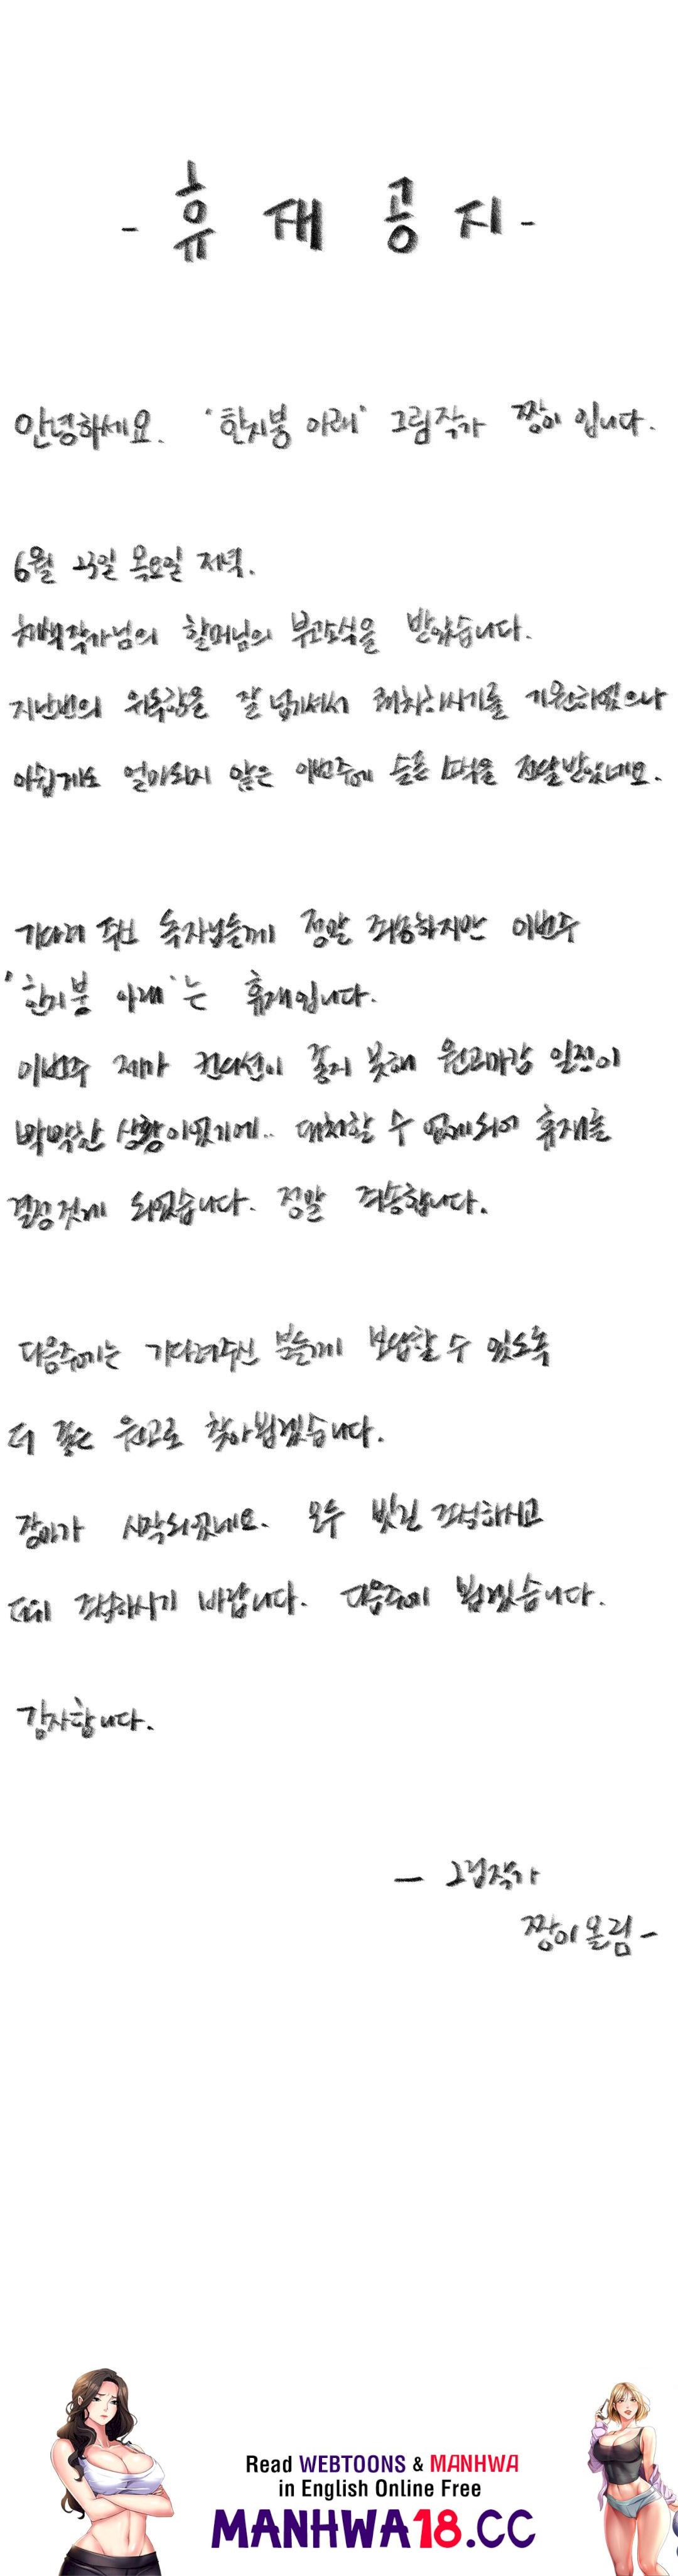 - 휴 재 공 지 -
안녕하세요. '한지붕 아래' 그림작가 짱이 입니다.
6월 23일 목요일 저녁.
작가님의 할머님의 부고소식을 받았습니다.
지난번의 위독함을 잘 넘기셔서 쾌차하시기를 기원하였으나
아쉽게도 얼마되지 않은 이번주에 슬픈 소식을 전달받았네요.
기다려 주신 독자님들께 정말 죄송하지만 이번주
'한지붕 아래'는 휴재입니다.
이번주 제가 컨디션이 좋지 못해 원고마감 일정이
빡빡한 상황이었기에.. 대처할 수 없게되어 휴재를
결정짓게 되었습니다. 정말 죄송합니다.
다음주에는 기다려주신 분들께 보답할 수 있도록
더 좋은 원고로 찾아뵙겠습니다.
장마가 시작되었네요. 모두 빗길 조심하시고
조심하시기 바랍니다. 다음주에 뵙겠습니다.
감사합니다.
- 그림작가
짱이 올림 -
Read WEBTOONS & MANHWA
in English Online Free
MANHWA18.CC